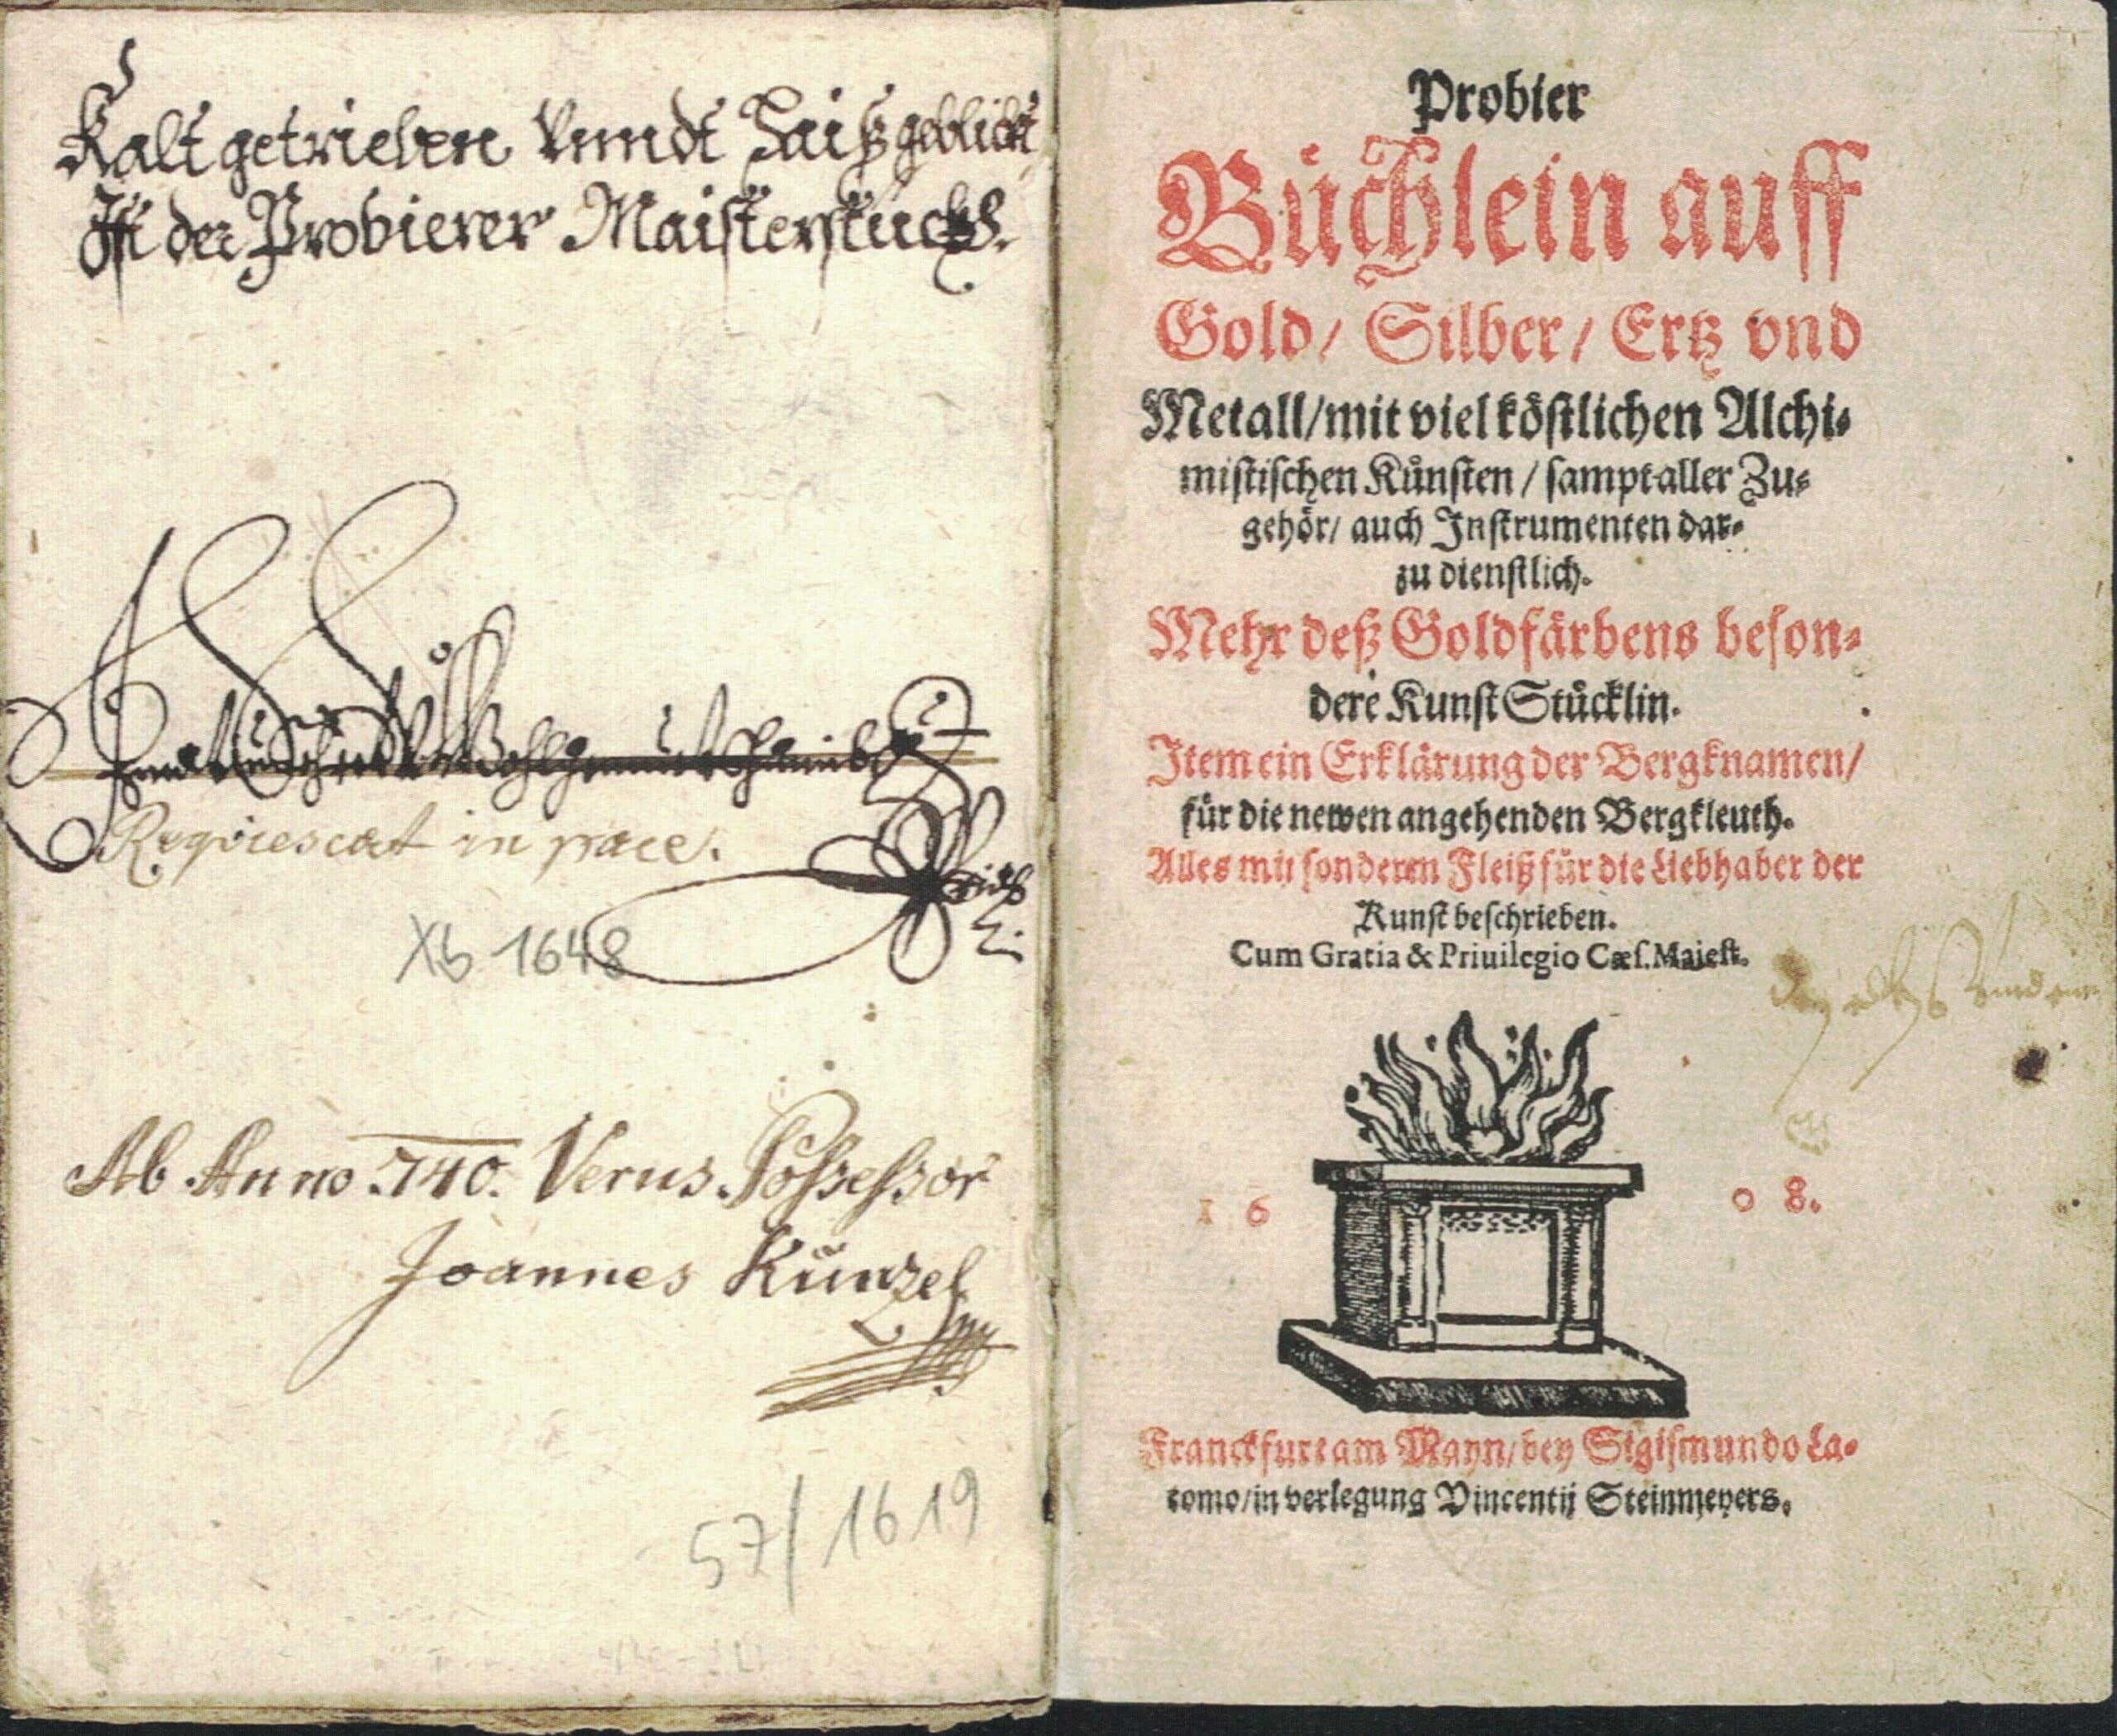 Kalt getrieben vnndt haiß geblickt
Ist der Probierer Maisterstückh.
Requiescat in pace.
Xb 1648
Ab Anno .740. Verus Possessor
Joannes Künzel
57/1619
Probier
Büchlein auff
Gold/ Silber/ Ertz vnd
Metall/mit viel köstlichen Alchi⸗
mistischen Künsten / sampt aller Zu⸗
gehör/ auch Instrumenten dar⸗
zu dienstlich.
Mehr deß Goldfärbens beson⸗
dere Kunst Stücklin.
Item ein Erklärung der Bergknamen/
für die newen angehenden Bergkleuth.
Alles mit sonderm Fleiß für die Liebhaber der
Kunst beschrieben.
Cum Gratia & Priuilegio Cæs. Maiest.
1 6 0 8.
Franckfurt am Mayn/bey Sigismundo La⸗
tomo/in verlegung Vincentij Steinmeyers.